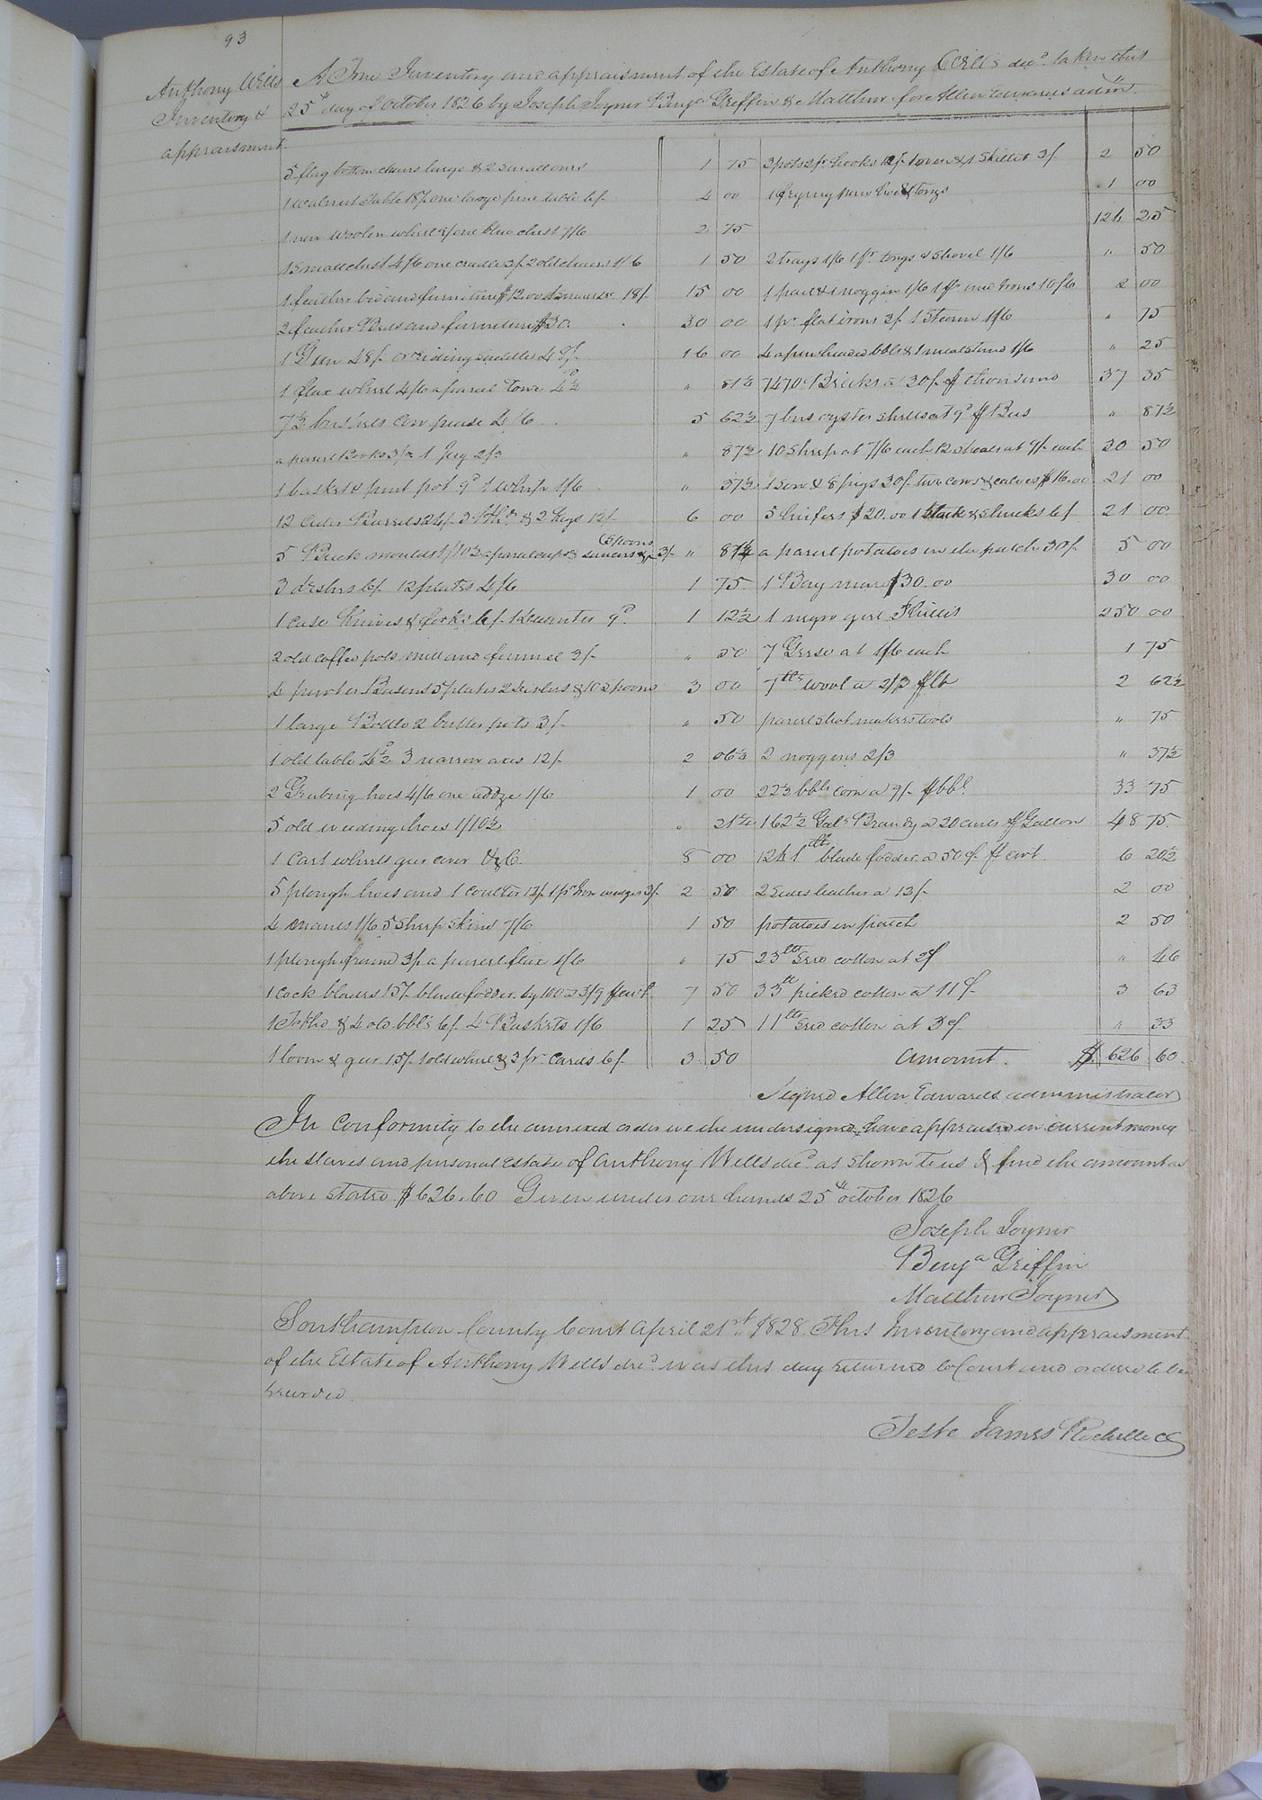 93
Anthony Wells
Inventory &
appraisment
A True Inventory and appraisment of the Estate of Anthony Wells decd. taken this
25th day of October 1826 by Joseph Joyner Benja Griffin & Matthew for Allen Edwards adm.
5 flag bottom chairs large & 2 small ones 1 75
1 walnut Table 18/ one large pine table 6/- 4 00
1 new woolen wheel & one blue chest 7/6 2 75
1 Small chest 4/6 one cradle 3/ 2 old chairs 1/6 1 50
1 feather bed and furniture $12.00 18/- 15 00
2 feather Beds and furniture $30. 30 00
1 Gun 48/- riding saddle 48/- 16 00
1 flax wheel 4/6 a parcel Tow " 81½
7½ bushels Cow pease 4/6 5 62½
a parcel Books 3/ 1 Jug 2/3 " 87½
1 basket & pint pot 9d 1 whip 1/6 " 37½
12 Cider Barrels 24/- 3 & 2 Kegs 12/- 6 00
5 Brick moulds 1/10½ a parcel cups & saucers & spoons 3/- " 81¼
3 dishes 6/- 12 plates 4/6 1 75
1 case Knives & forks 6/- 1 decanter 9d. 1 12½
2 old coffee pots mill and funnel 3/- " 50
4 pewter Basens 5 plates 2 & 10 spoons 3 00
1 large Bottle 2 butter pots 3/- " 50
1 old table 3 narrow axes 12/- 2 06¼
2 Grubing hoes 4/6 one addze 1/6 1 00
5 old weeding hoes 1/10½ " 31¼
1 Cart wheels gear &C. 8 00
5 plough hoes and 1 coulter 12/- 1 pr Iron wedges 3/- 2 50
4 1/6 5 Sheep Skins 7/6 1 50
1 plough frame 3/- a parcel flax 1/6 " 75
1 cock blades 15/- blade fodder. by 100 a 3/9 cwt. 7 50
1 & 4 old bbls 6/- 4 Baskets 1/6 1 25
1 loom & gear 15/- 1 old wheel & 3 pr. Cards 6/- 3 50
2 pots 2 pr hooks 12/- 1 oven & 1 Skillet 3/ 2 50
1 frying pan hoe & tongs 1 00
126 25
2 trays 1/6 1 pr tongs & Shovel 1/6 " 50
1 pail & noggin 1/6 1 pr and Irons 10/6 2 00
1 pr. flat irons 3/ 1 1/6 " 75
4 open headed bbls & 1 meal stand 1/6 " 25
7470 Bricks a 30/- thousand 37 35
7 bus oyster shells at 9d Bus " 87½
10 Sheep at 7/6 each 12 Shoats at 9/- each 30 50
1 Sow & 8 pigs 30/- two cows & calves $16.00 21 00
3 heifers $20.00 1 Stack & Shucks 6/ 21 00
a parcel potatoes in the patch 30/- 5 00
1 Bay mare $30.00 30 00
1 negro girl Phillis 250 00
7 Geese at 1/6 each 1 75
7 lbs wool a 2/3 lb 2 62½
parcel shoe makers tools " 75
2 noggins 2/3 " 37½
22½ bbls corn a 9/- bbl. 33 75
162½ Gals Brandy a 30 cents Gallon 48 75
1241 lb blade fodder a 50 cwt. 6 20½
2 Sides leather a 13/- 2 00
potatoes in patch 2 50
23 lb Seed cotton at 2 " 46
33 lb picked cotton a 11 3 63
11 lb Seed cotton at 3 " 33
amount. $626 60.
Signed Allen Edwards administrator
In Conformity to the annexed order we the undersigned have appraised in current money
the slaves and personal Estate of Anthony Wells decd. as Shown to us & find the amount as
above Stated $626.60 Given under our hands 25th October 1826
Joseph Joyner
Benja Griffin
Matthew Joyner
Southampton County Court April 21st 1828. This Inventory and appraisment
of the Estate of Anthony Wells decd. was this day returned to Court and ordered to be
recorded.
Teste James Rochelle CC